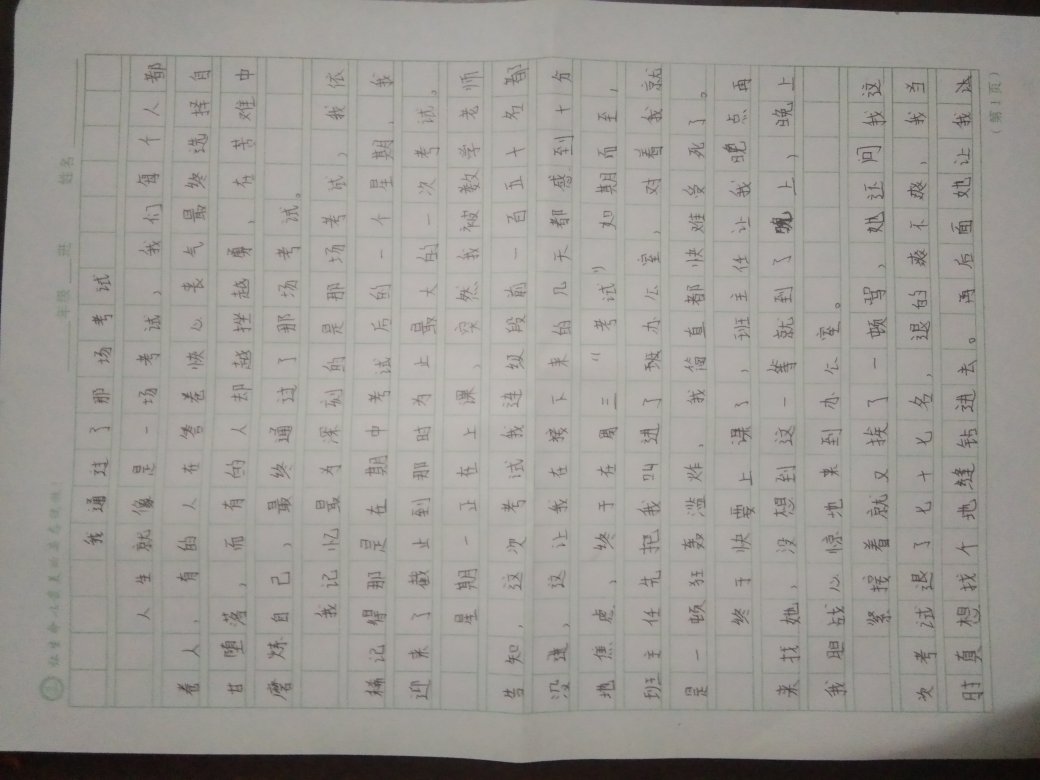 年级 班 姓名
我通过了那场考试
人生就像是一场考试，我们每个人都
卷人，有的人在答卷怏心丧气最终选择自
甘堕落，而有的人却越挫越勇，在苦难中
磨炼自己，最终通过了那场考试。
我记忆最为深刻的是那场考试，我依
稀记得那是在期中考试后的一个星期，我
迎来了截止到那时为止最大的一次考试。
星期一正在上课，突然我被数学老师
告知，这次考试我连级段前一百五十名都
没进，这让我在接下来的几天都感到十分
地焦虑，终于在周三“考试”如期而至，
班主任先把我叫进了班办公室，对着我就
是一顿狂轰滥炸，我简直都快难受死了。
终于快要上课了，班主任让我晚点再
来找她，没想到这一等就到了晚上，晚上
我胆战心惊地来到办公室。
紧接着就又挨了一顿骂，她还问我这
次考试退了七十七名，退的爽不爽，我当
时真想找个地缝钻进去。再后面她让我达
（第1页）